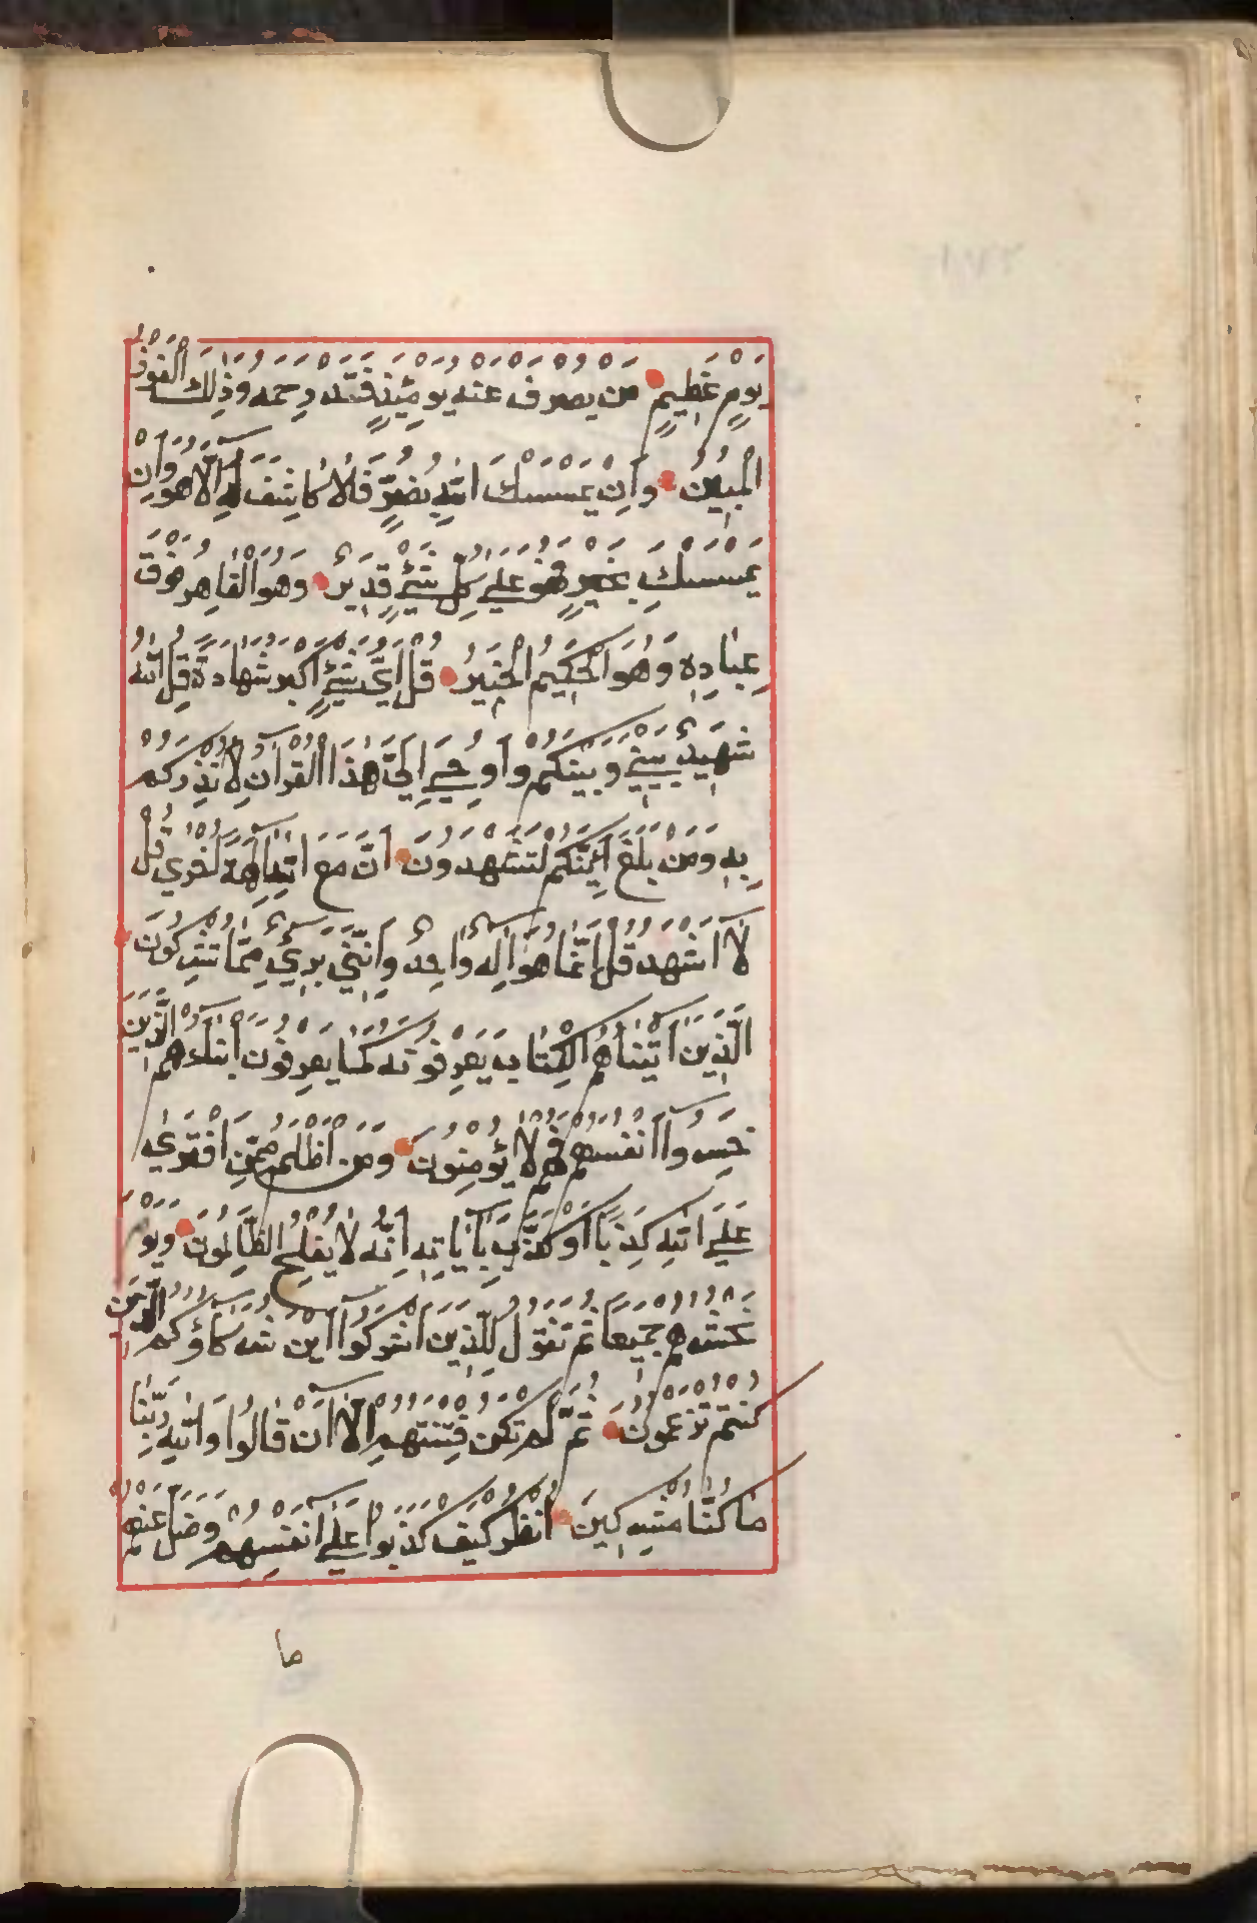 يَوْمٍ عَظِيمٍ مَنْ يُصْرَفْ عَنْهُ يَوْمَئِذٍ فَقَدْ رَحِمَهُ وَذَٰلِكَ الْفَوْزُ
الْمُبِينُ وَاِنْ يَمْسَسْكَ اللّٰهُ بِضُرٍّ فَلَا كَاشِفَ لَهُ اِلَّا هُوَ وَاِنْ
يَمْسَسْكَ بِخَيْرٍ فَهُوَ عَلَىٰ كُلِّ شَيْءٍ قَدِيرٌ وَهُوَ الْقَاهِرُ فَوْقَ
عِبَادِهِ وَهُوَ الْحَكِيمُ الْخَبِيرُ قُلْ اَيُّ شَيْءٍ اَكْبَرُ شَهَادَةً قُلِ اللّٰهُ
شَهِيدٌ بَيْنِي وَبَيْنَكُمْ وَاُوحِيَ اِلَيَّ هٰذَا الْقُرْآنُ لِاُنْذِرَكُمْ
بِهِ وَمَنْ بَلَغَ اَئِنَّكُمْ لَتَشْهَدُونَ اَنَّ مَعَ اللّٰهِ آلِهَةً اُخْرَىٰ قُلْ
لَا اَشْهَدُ قُلْ اِنَّمَا هُوَ اِلٰهٌ وَاحِدٌ وَاِنَّنِي بَرِيءٌ مِمَّا تُشْرِكُونَ
الَّذِينَ آتَيْنَاهُمُ الْكِتَابَ يَعْرِفُونَهُ كَمَا يَعْرِفُونَ اَبْنَاءَهُمْ الَّذِينَ
خَسِرُوا اَنْفُسَهُمْ فَهُمْ لَا يُؤْمِنُونَ وَمَنْ اَظْلَمُ مِمَّنِ افْتَرَىٰ
عَلَى اللّٰهِ كَذِبًا اَوْ كَذَّبَ بِآيَاتِهِ اِنَّهُ لَا يُفْلِحُ الظَّالِمُونَ وَيَوْمَ
نَحْشُرُهُمْ جَمِيعًا ثُمَّ نَقُولُ لِلَّذِينَ اَشْرَكُوا اَيْنَ شُرَكَاؤُكُمُ الَّذِينَ
كُنْتُمْ تَزْعُمُونَ ثُمَّ لَمْ تَكُنْ فِتْنَتُهُمْ اِلَّا اَنْ قَالُوا وَاللّٰهِ رَبِّنَا
مَا كُنَّا مُشْرِكِينَ اُنْظُرْ كَيْفَ كَذَبُوا عَلَىٰ اَنْفُسِهِمْ وَضَلَّ عَنْهُمْ
ما